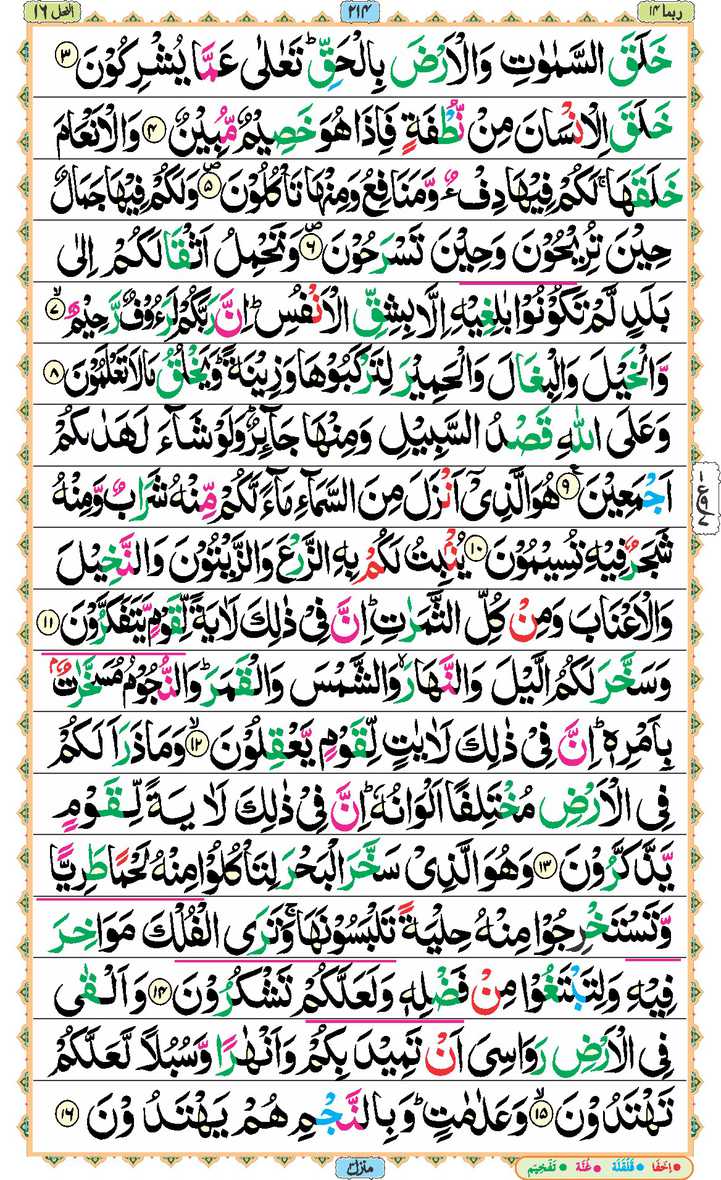 ربما ١٤
٢١٤
النحل ١٦
خَلَقَ السَّمٰوٰتِ وَالْاَرْضَ بِالْحَقِّ ؕ تَعٰلٰى عَمَّا يُشْرِكُوْنَ ﴿۳﴾
خَلَقَ الْاِنْسَانَ مِنْ نُّطْفَةٍ فَاِذَا هُوَ خَصِيْمٌ مُّبِيْنٌ ﴿۴﴾ وَالْاَنْعَامَ
خَلَقَهَا ۚ لَكُمْ فِيْهَا دِفْءٌ وَّمَنَافِعُ وَمِنْهَا تَاْكُلُوْنَ ۪ ﴿۵﴾ وَلَكُمْ فِيْهَا جَمَالٌ
حِيْنَ تُرِيْحُوْنَ وَحِيْنَ تَسْرَحُوْنَ ۪ ﴿۶﴾ وَتَحْمِلُ اَثْقَالَكُمْ اِلٰى
بَلَدٍ لَّمْ تَكُوْنُوْا بٰلِغِيْهِ اِلَّا بِشِقِّ الْاَنْفُسِ ؕ اِنَّ رَبَّكُمْ لَرَءُوْفٌ رَّحِيْمٌ ۙ ﴿۷﴾
وَّالْخَيْلَ وَالْبِغَالَ وَالْحَمِيْرَ لِتَرْكَبُوْهَا وَزِيْنَةً ؕ وَيَخْلُقُ مَا لَا تَعْلَمُوْنَ ﴿۸﴾
وَعَلَى اللّٰهِ قَصْدُ السَّبِيْلِ وَمِنْهَا جَآئِرٌ ؕ وَلَوْ شَآءَ لَهَدٰىكُمْ
اَجْمَعِيْنَ ﴿۹﴾ هُوَ الَّذِيْۤ اَنْزَلَ مِنَ السَّمَآءِ مَآءً لَّكُمْ مِّنْهُ شَرَابٌ وَّمِنْهُ
شَجَرٌ فِيْهِ تُسِيْمُوْنَ ﴿۱۰﴾ يُنْۢبِتُ لَكُمْ بِهِ الزَّرْعَ وَالزَّيْتُوْنَ وَالنَّخِيْلَ
وَالْاَعْنَابَ وَمِنْ كُلِّ الثَّمَرٰتِ ؕ اِنَّ فِيْ ذٰلِكَ لَاٰيَةً لِّقَوْمٍ يَّتَفَكَّرُوْنَ ﴿۱۱﴾
وَسَخَّرَ لَكُمُ الَّيْلَ وَالنَّهَارَ ۙ وَالشَّمْسَ وَالْقَمَرَ ؕ وَالنُّجُوْمُ مُسَخَّرٰتٌۢ
بِاَمْرِهٖ ؕ اِنَّ فِيْ ذٰلِكَ لَاٰيٰتٍ لِّقَوْمٍ يَّعْقِلُوْنَ ۙ ﴿۱۲﴾ وَمَا ذَرَاَ لَكُمْ
فِي الْاَرْضِ مُخْتَلِفًا اَلْوَانُهٗ ؕ اِنَّ فِيْ ذٰلِكَ لَاٰيَةً لِّقَوْمٍ
يَّذَّكَّرُوْنَ ﴿۱۳﴾ وَهُوَ الَّذِيْ سَخَّرَ الْبَحْرَ لِتَاْكُلُوْا مِنْهُ لَحْمًا طَرِيًّا
وَّتَسْتَخْرِجُوْا مِنْهُ حِلْيَةً تَلْبَسُوْنَهَا ۚ وَتَرَى الْفُلْكَ مَوَاخِرَ
فِيْهِ وَلِتَبْتَغُوْا مِنْ فَضْلِهٖ وَلَعَلَّكُمْ تَشْكُرُوْنَ ﴿۱۴﴾ وَاَلْقٰى
فِي الْاَرْضِ رَوَاسِيَ اَنْ تَمِيْدَ بِكُمْ وَاَنْهٰرًا وَّسُبُلًا لَّعَلَّكُمْ
تَهْتَدُوْنَ ۙ ﴿۱۵﴾ وَعَلٰمٰتٍ ؕ وَبِالنَّجْمِ هُمْ يَهْتَدُوْنَ ﴿۱۶﴾
منزل ۳
اِخفَا قَلْقَلَة غُنَّة تَفْخِيْم